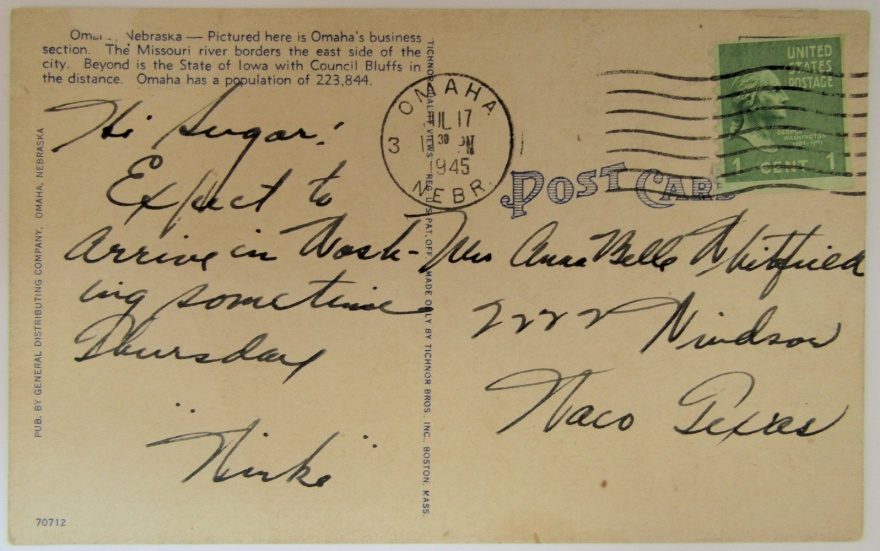 Nebraska — Pictured here is Omaha's business
section. The Missouri river borders the east side of the
city. Beyond is the State of Iowa with Council Bluffs in
the distance. Omaha has a population of 223,844.
Hi Sugar!
Expect to
arrive in Wash-
ing sometime
Thursday
OMAHA
JUL 17
3 30 PM
1945
NEBR.
UNITED
STATES
POSTAGE
GEORGE
WASHINGTON
1 CENT 1
POST CARD
Mrs Anna Belle Whitfield
2222 Windsor
Waco Texas
PUB. BY GENERAL DISTRIBUTING COMPANY, OMAHA, NEBRASKA
TICHNOR QUALITY VIEWS REG. U.S. PAT. OFF. MADE ONLY BY TICHNOR BROS., INC., BOSTON, MASS.
70712